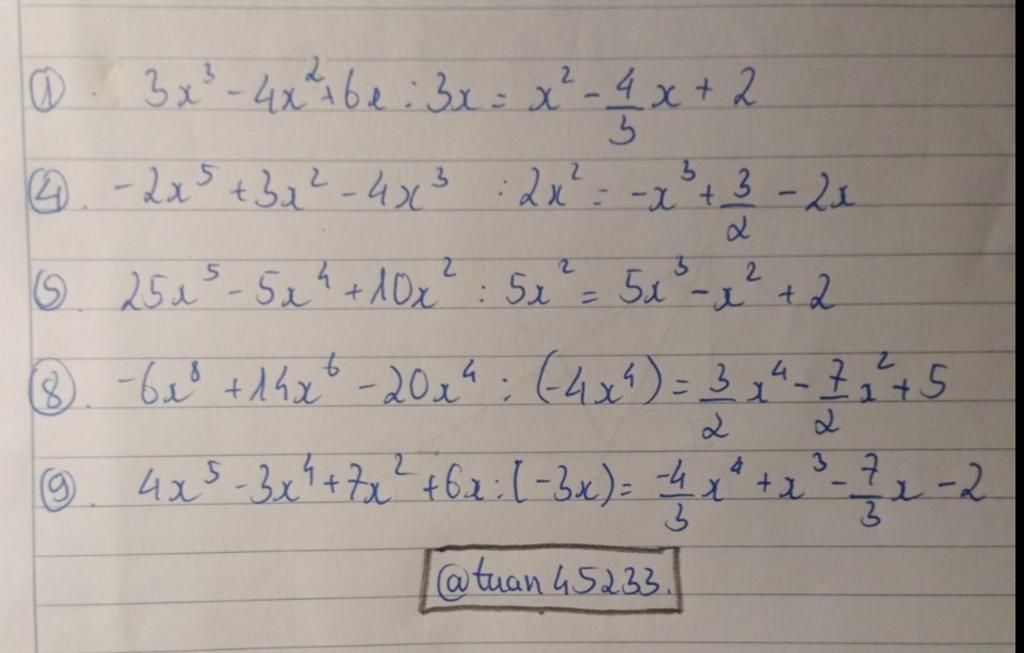 ① . 3x³ - 4x² + 6x : 3x = x² - 4/3 x + 2
④ . -2x⁵ + 3x² - 4x³ : 2x² = -x³ + 3/2 - 2x
⑤ . 25x⁵ - 5x⁴ + 10x² : 5x² = 5x³ - x² + 2
⑧ . -6x⁸ + 14x⁶ - 20x⁴ : (-4x⁴) = 3/2 x⁴ - 7/2 x² + 5
⑨ . 4x⁵ - 3x⁴ + 7x² + 6x : (-3x) = -4/3 x⁴ + x³ - 7/3 x - 2
@tuan45233.